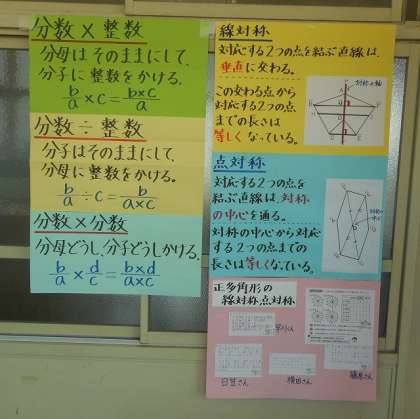 分数×整数
分母はそのままにして、
分子に整数をかける。
b/a×c=b×c/a
分数÷整数
分子はそのままにして、
分母に整数をかける。
b/a÷c=b/a×c
分数×分数
分母どうし、分子どうしかける。
b/a×d/c=b×d/a×c
線対称
対応する2つの点を結ぶ直線は、
垂直に交わる。
この交わる点から
対応する2つの点
までの長さは
等しくなっている。
対称の軸
点対称
対応する2つの点を
結ぶ直線は、対称
の中心を通る。
対称の中心から対応
する2つの点までの
長さは等しくなっている。
正多角形の
線対称点対称
日笠さん
横田さん